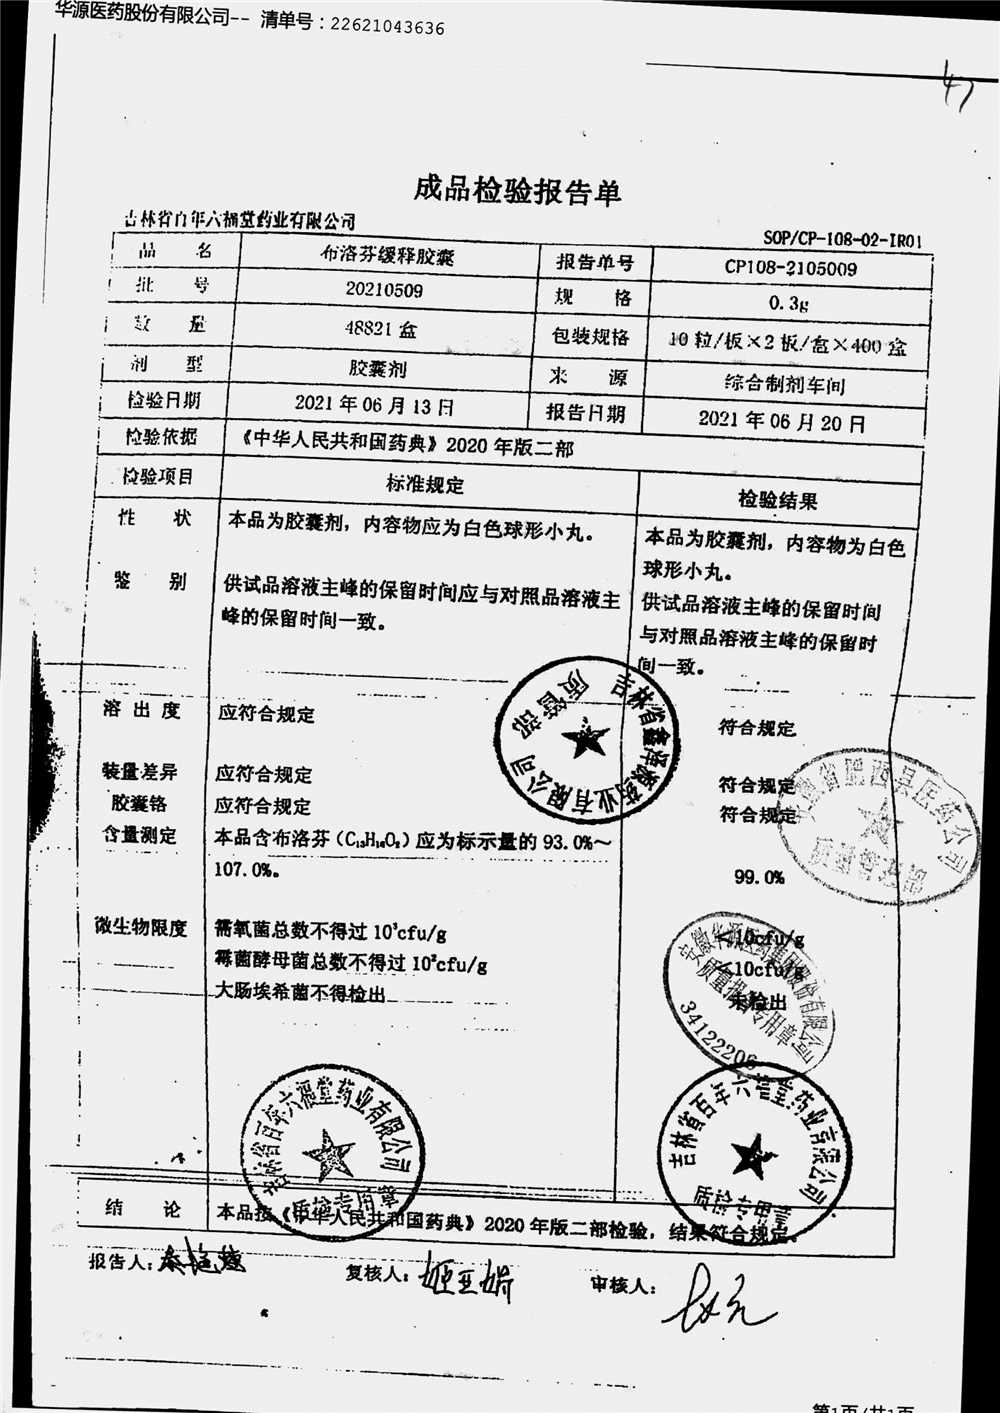 华源医药股份有限公司-- 清单号：22621043636
47
成品检验报告单
吉林省百年六福堂药业有限公司
SOP/CP-108-02-IR01
品 名 布洛芬缓释胶囊 报告单号 CP108-2105009
批 号 20210509 规 格 0.3g
数 量 48821 盒 包装规格 10 粒/板×2 板/盒×400 盒
剂 型 胶囊剂 来 源 综合制剂车间
检验日期 2021 年 06 月 13 日 报告日期 2021 年 06 月 20 日
检验依据 《中华人民共和国药典》2020 年版二部
检验项目 标准规定 检验结果
性 状 本品为胶囊剂，内容物应为白色球形小丸。 本品为胶囊剂，内容物为白色
球形小丸。
鉴 别 供试品溶液主峰的保留时间应与对照品溶液主 供试品溶液主峰的保留时间
峰的保留时间一致。 与对照品溶液主峰的保留时
间一致。
溶 出 度 应符合规定 符合规定
装量差异 应符合规定 符合规定
胶囊铬 应符合规定 符合规定
含量测定 本品含布洛芬（C₁₃H₁₈O₂）应为标示量的 93.0%～
107.0%。 99.0%
微生物限度 需氧菌总数不得过 10³cfu/g <10cfu/g
霉菌酵母菌总数不得过 10²cfu/g <10cfu/g
大肠埃希菌不得检出 未检出
吉林省鑫泽源药业有限公司
质管部
安徽省肥西县医药公司
安徽华源医药集团股份有限公司
质量报告专用章
34122206
吉林省百年六福堂药业有限公司
质检专用章
吉林省百年六福堂药业有限公司
质检专用章
结 论 本品按《中华人民共和国药典》2020 年版二部检验，结果符合规定。
报告人： 复核人： 审核人：
第1页/共1页